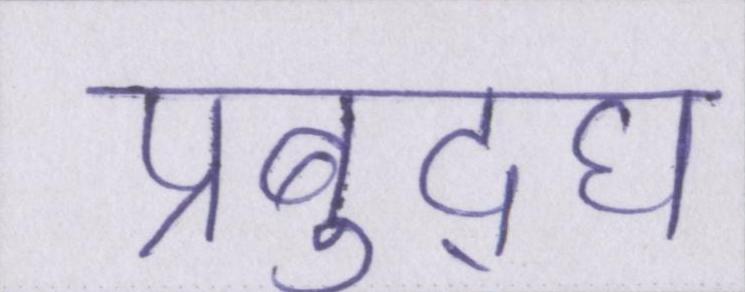 प्रबुद्ध